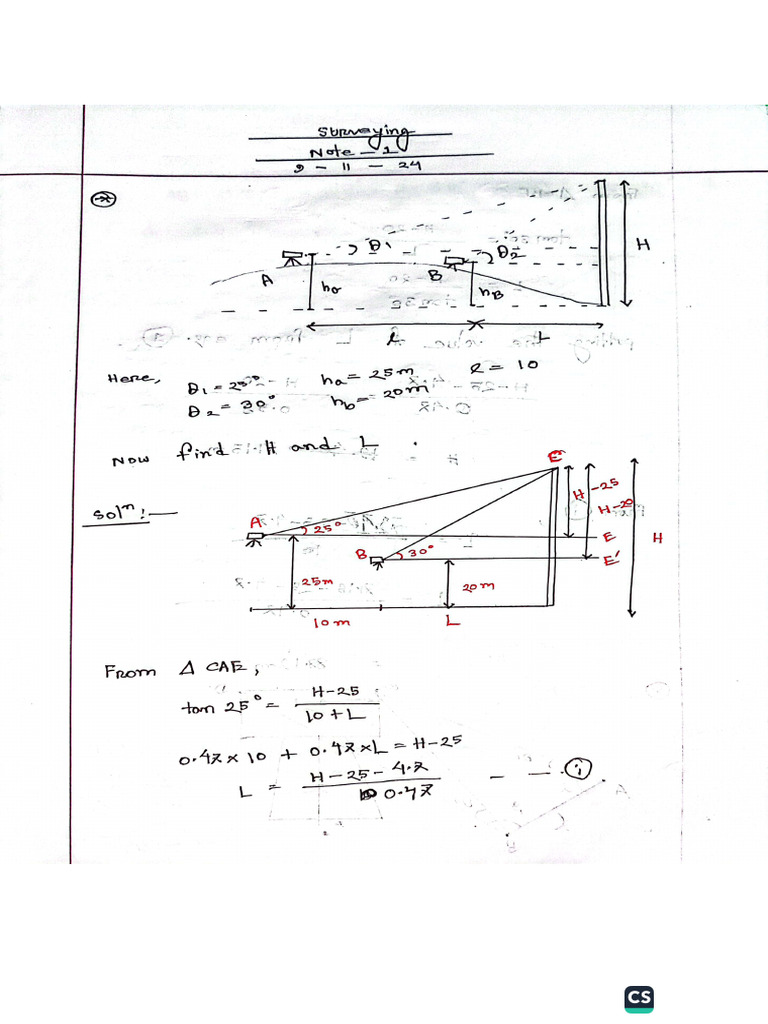 Surveying
Note - 1
9 - 11 - 24
H
θ1
θ2
A
B
ha
hB
l
L
Here, θ1 = 25° ha = 25m l = 10
θ2 = 30° hb = 20m
Now find H and L .
Solⁿ:—
E
H-25
H-20
A
25°
E
H
B
30°
E'
25m
20m
10m
L
From Δ CAE,
tan 25° = H-25 / 10+L
0.47 × 10 + 0.47 × L = H-25
L = H-25-4.7 / 0.47 - - - (i)
CS